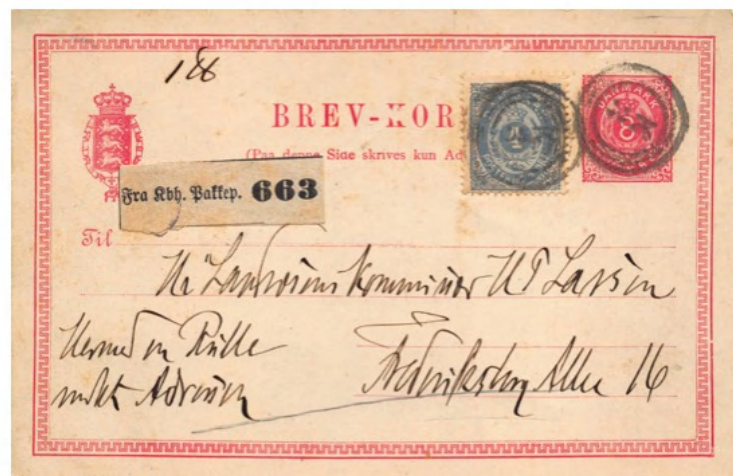 188
BREV-KOR
DANMARK
8
4
(Paa denne Side skrives kun Ad
Fra Kbh. Pakkep. 663
Til
Hr Landvæsenskommissær H P Larsen
Hermed en Rulle
mrkt Adressen
Frederiksberg Allee 16